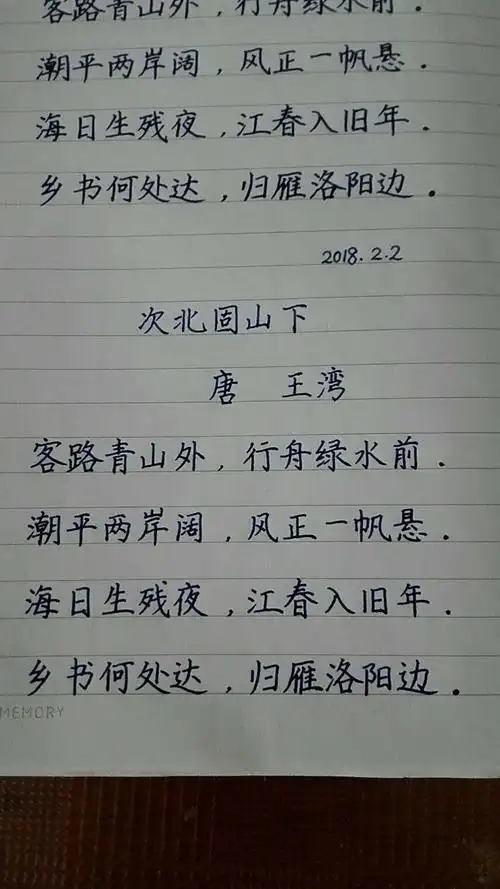 客路青山外，行舟绿水前．
潮平两岸阔，风正一帆悬．
海日生残夜，江春入旧年．
乡书何处达，归雁洛阳边．
2018.2.2
次北固山下
唐 王湾
客路青山外，行舟绿水前．
潮平两岸阔，风正一帆悬．
海日生残夜，江春入旧年．
乡书何处达，归雁洛阳边．
MEMORY